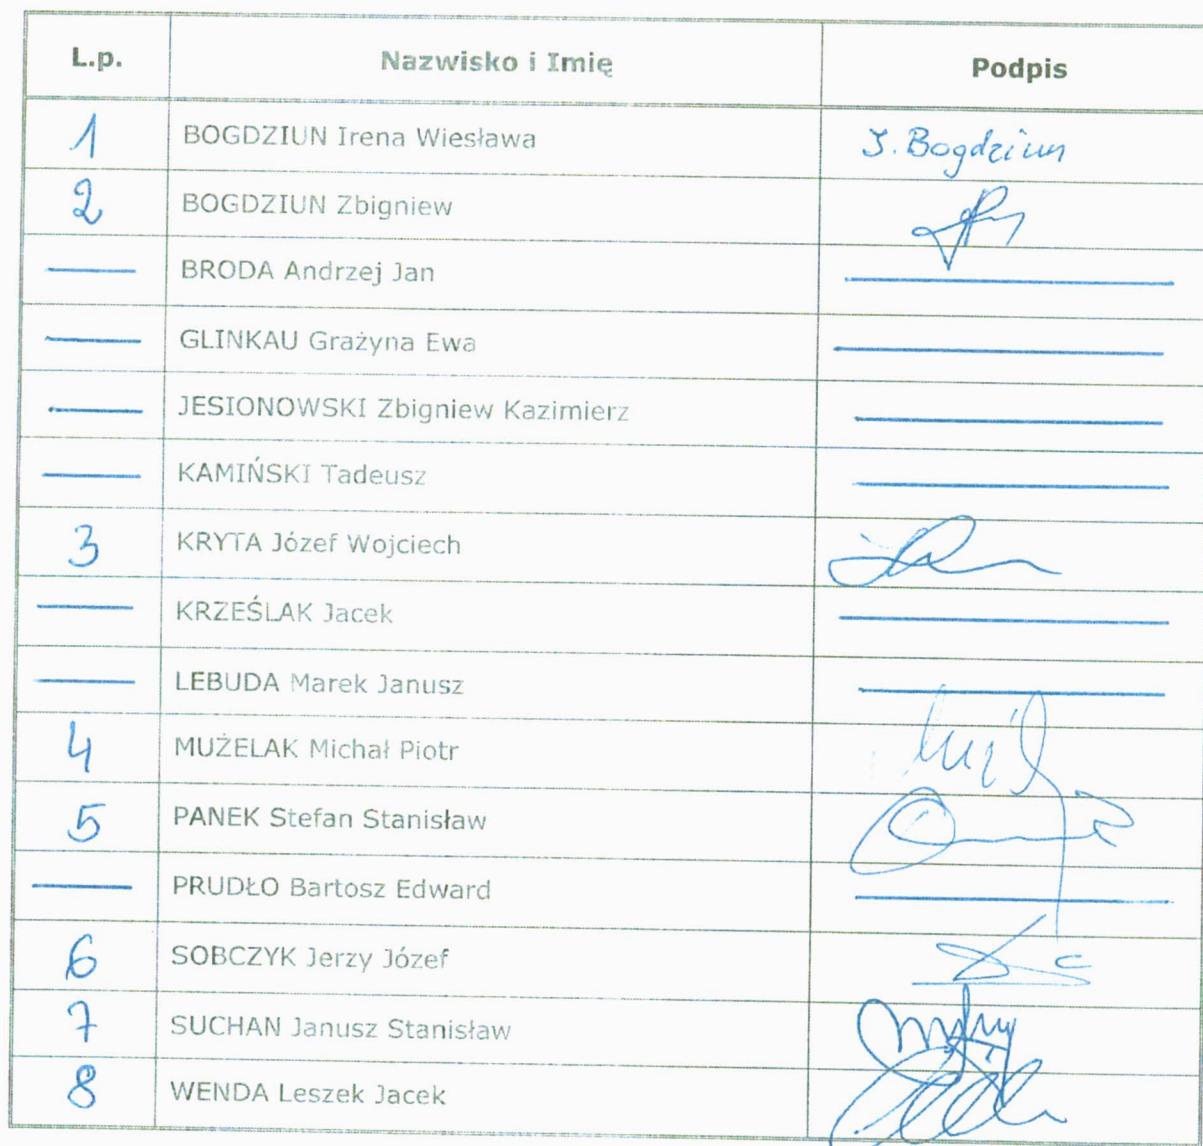 L.p. Nazwisko i Imię Podpis
1 BOGDZIUN Irena Wiesława J. Bogdziun
2 BOGDZIUN Zbigniew
BRODA Andrzej Jan
GLINKAU Grażyna Ewa
JESIONOWSKI Zbigniew Kazimierz
KAMIŃSKI Tadeusz
3 KRYTA Józef Wojciech
KRZEŚLAK Jacek
LEBUDA Marek Janusz
4 MUŻELAK Michał Piotr
5 PANEK Stefan Stanisław
PRUDŁO Bartosz Edward
6 SOBCZYK Jerzy Józef
7 SUCHAN Janusz Stanisław
8 WENDA Leszek Jacek